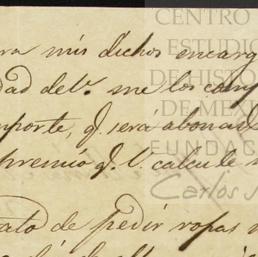 CENTRO
ESTUDIO
DE HISTO
DE MÉXI
FUNDAC
Carlos S
ra mis dichos encarg
dad de V. me los comp
mporte, q. será abonad
premio q. V. calcule
tato de pedir ropas